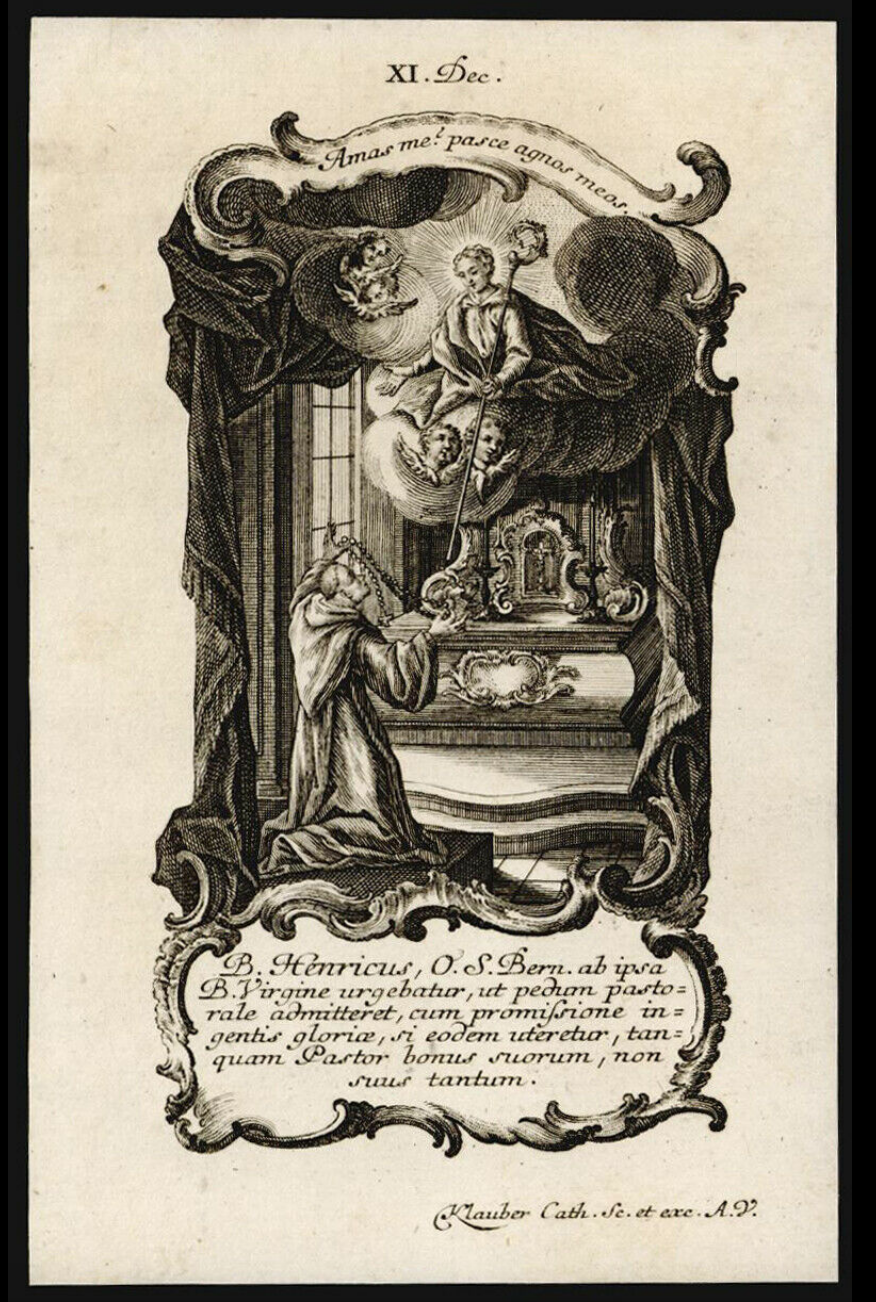 XI. Dec.
Amas me? pasce agnos meos.
B. Henricus, O. S. Bern. ab ipsa
B. Virgine urgebatur, ut pedum pasto=
rale admitteret, cum promissione in=
gentis gloriæ, si eodem uteretur, tan=
quam Pastor bonus suorum, non
suus tantum.
Klauber Cath. Sc. et exc. A. V.